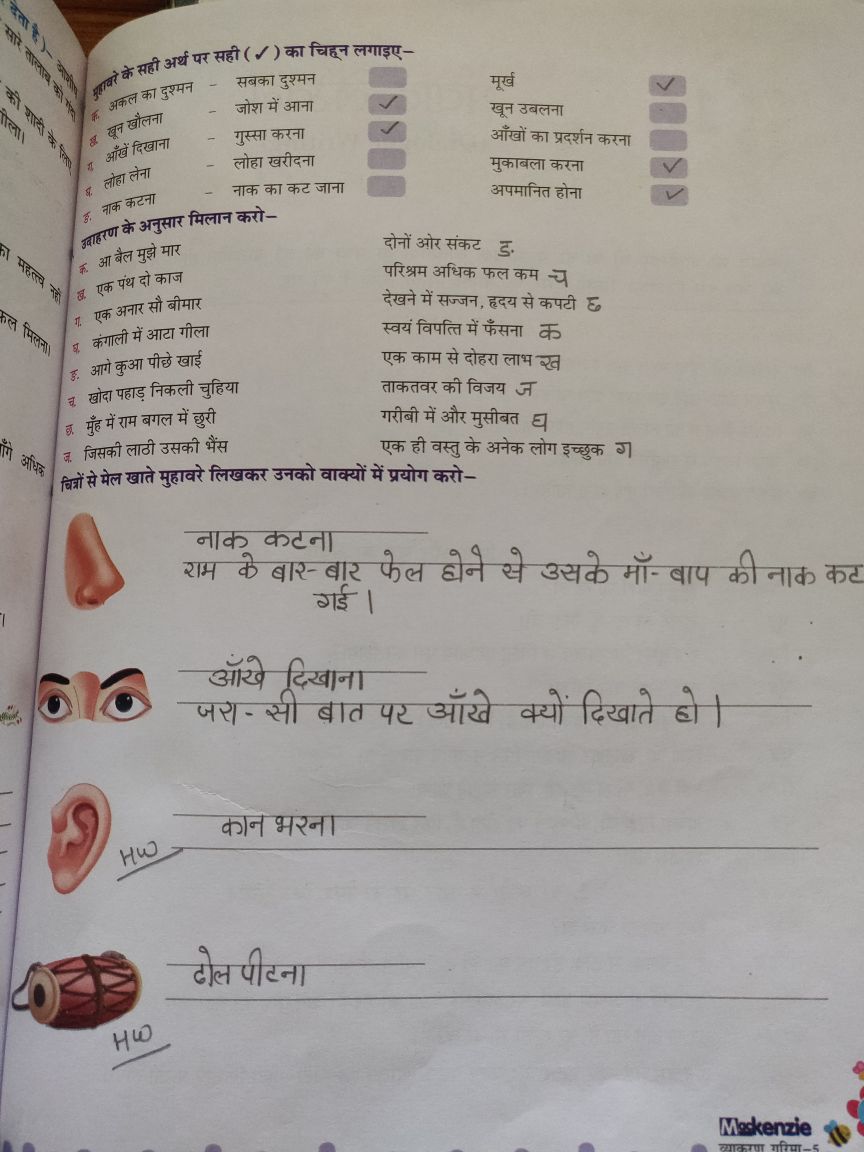 देता है)– आमीष
सारे तालाब को गंदा
की शादी के लिए
गीला।
का महत्त्व नहीं
फल मिलना।
माँगे अधिक
मुहावरे के सही अर्थ पर सही ( ✓ ) का चिह्न लगाइए–
क. अकल का दुश्मन – सबका दुश्मन मूर्ख ✓
ख. खून खौलना – जोश में आना ✓ खून उबलना
ग. आँखें दिखाना – गुस्सा करना ✓ आँखों का प्रदर्शन करना
घ. लोहा लेना – लोहा खरीदना मुकाबला करना ✓
ङ. नाक कटना – नाक का कट जाना अपमानित होना ✓
उदाहरण के अनुसार मिलान करो–
क. आ बैल मुझे मार दोनों ओर संकट ङ
ख. एक पंथ दो काज परिश्रम अधिक फल कम च
ग. एक अनार सौ बीमार देखने में सज्जन, हृदय से कपटी छ
घ. कंगाली में आटा गीला स्वयं विपत्ति में फँसना क
ङ. आगे कुआ पीछे खाई एक काम से दोहरा लाभ ख
च. खोदा पहाड़ निकली चुहिया ताकतवर की विजय ज
छ. मुँह में राम बगल में छुरी गरीबी में और मुसीबत घ
ज. जिसकी लाठी उसकी भैंस एक ही वस्तु के अनेक लोग इच्छुक ग
चित्रों से मेल खाते मुहावरे लिखकर उनको वाक्यों में प्रयोग करो–
नाक कटना
राम के बार-बार फेल होने से उसके माँ-बाप की नाक कट
गई।
आँखे दिखाना
जरा-सी बात पर आँखे क्यों दिखाते हो।
कान भरना
HW
ढोल पीटना
HW
Maskenzie
व्याकरण गरिमा–5